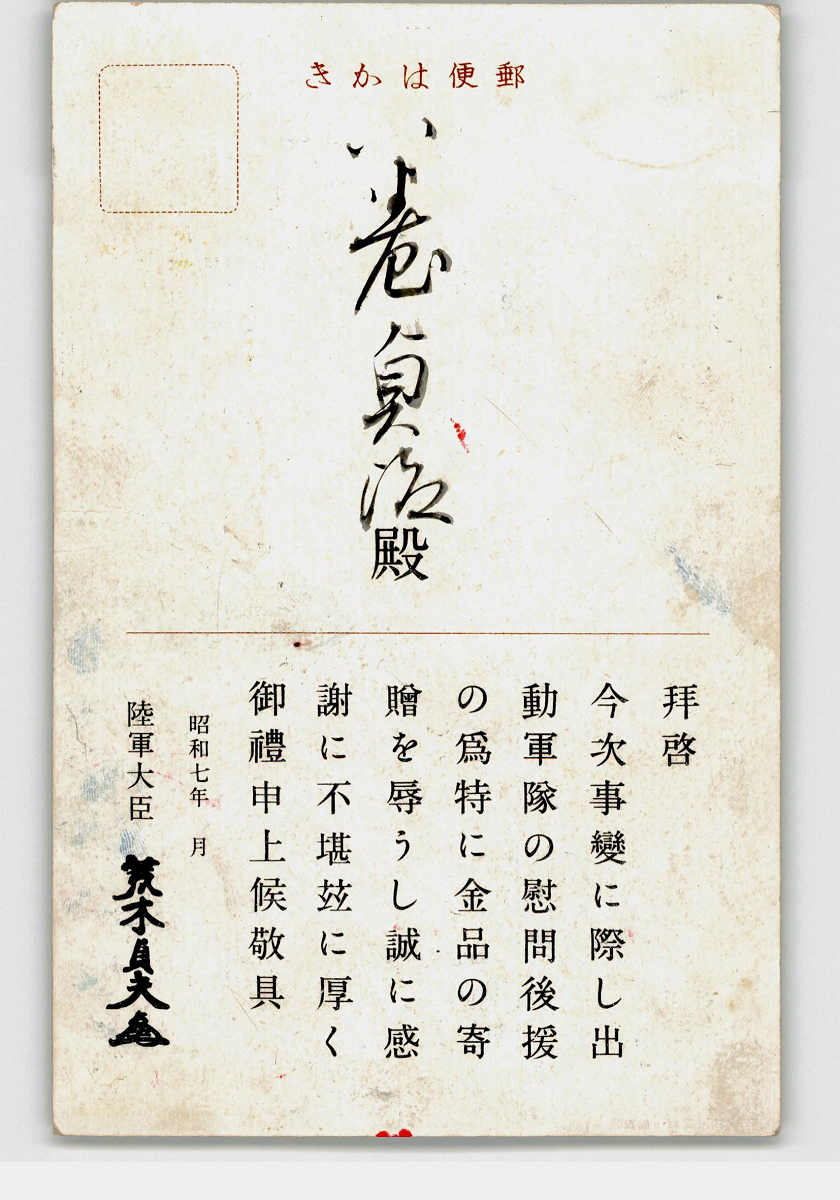 郵便はかき
八巻貞治殿
拝啓
今次事變に際し出
動軍隊の慰問後援
の爲特に金品の寄
贈を辱うし誠に感
謝に不堪玆に厚く
御禮申上候敬具
昭和七年　月
陸軍大臣　荒木貞夫